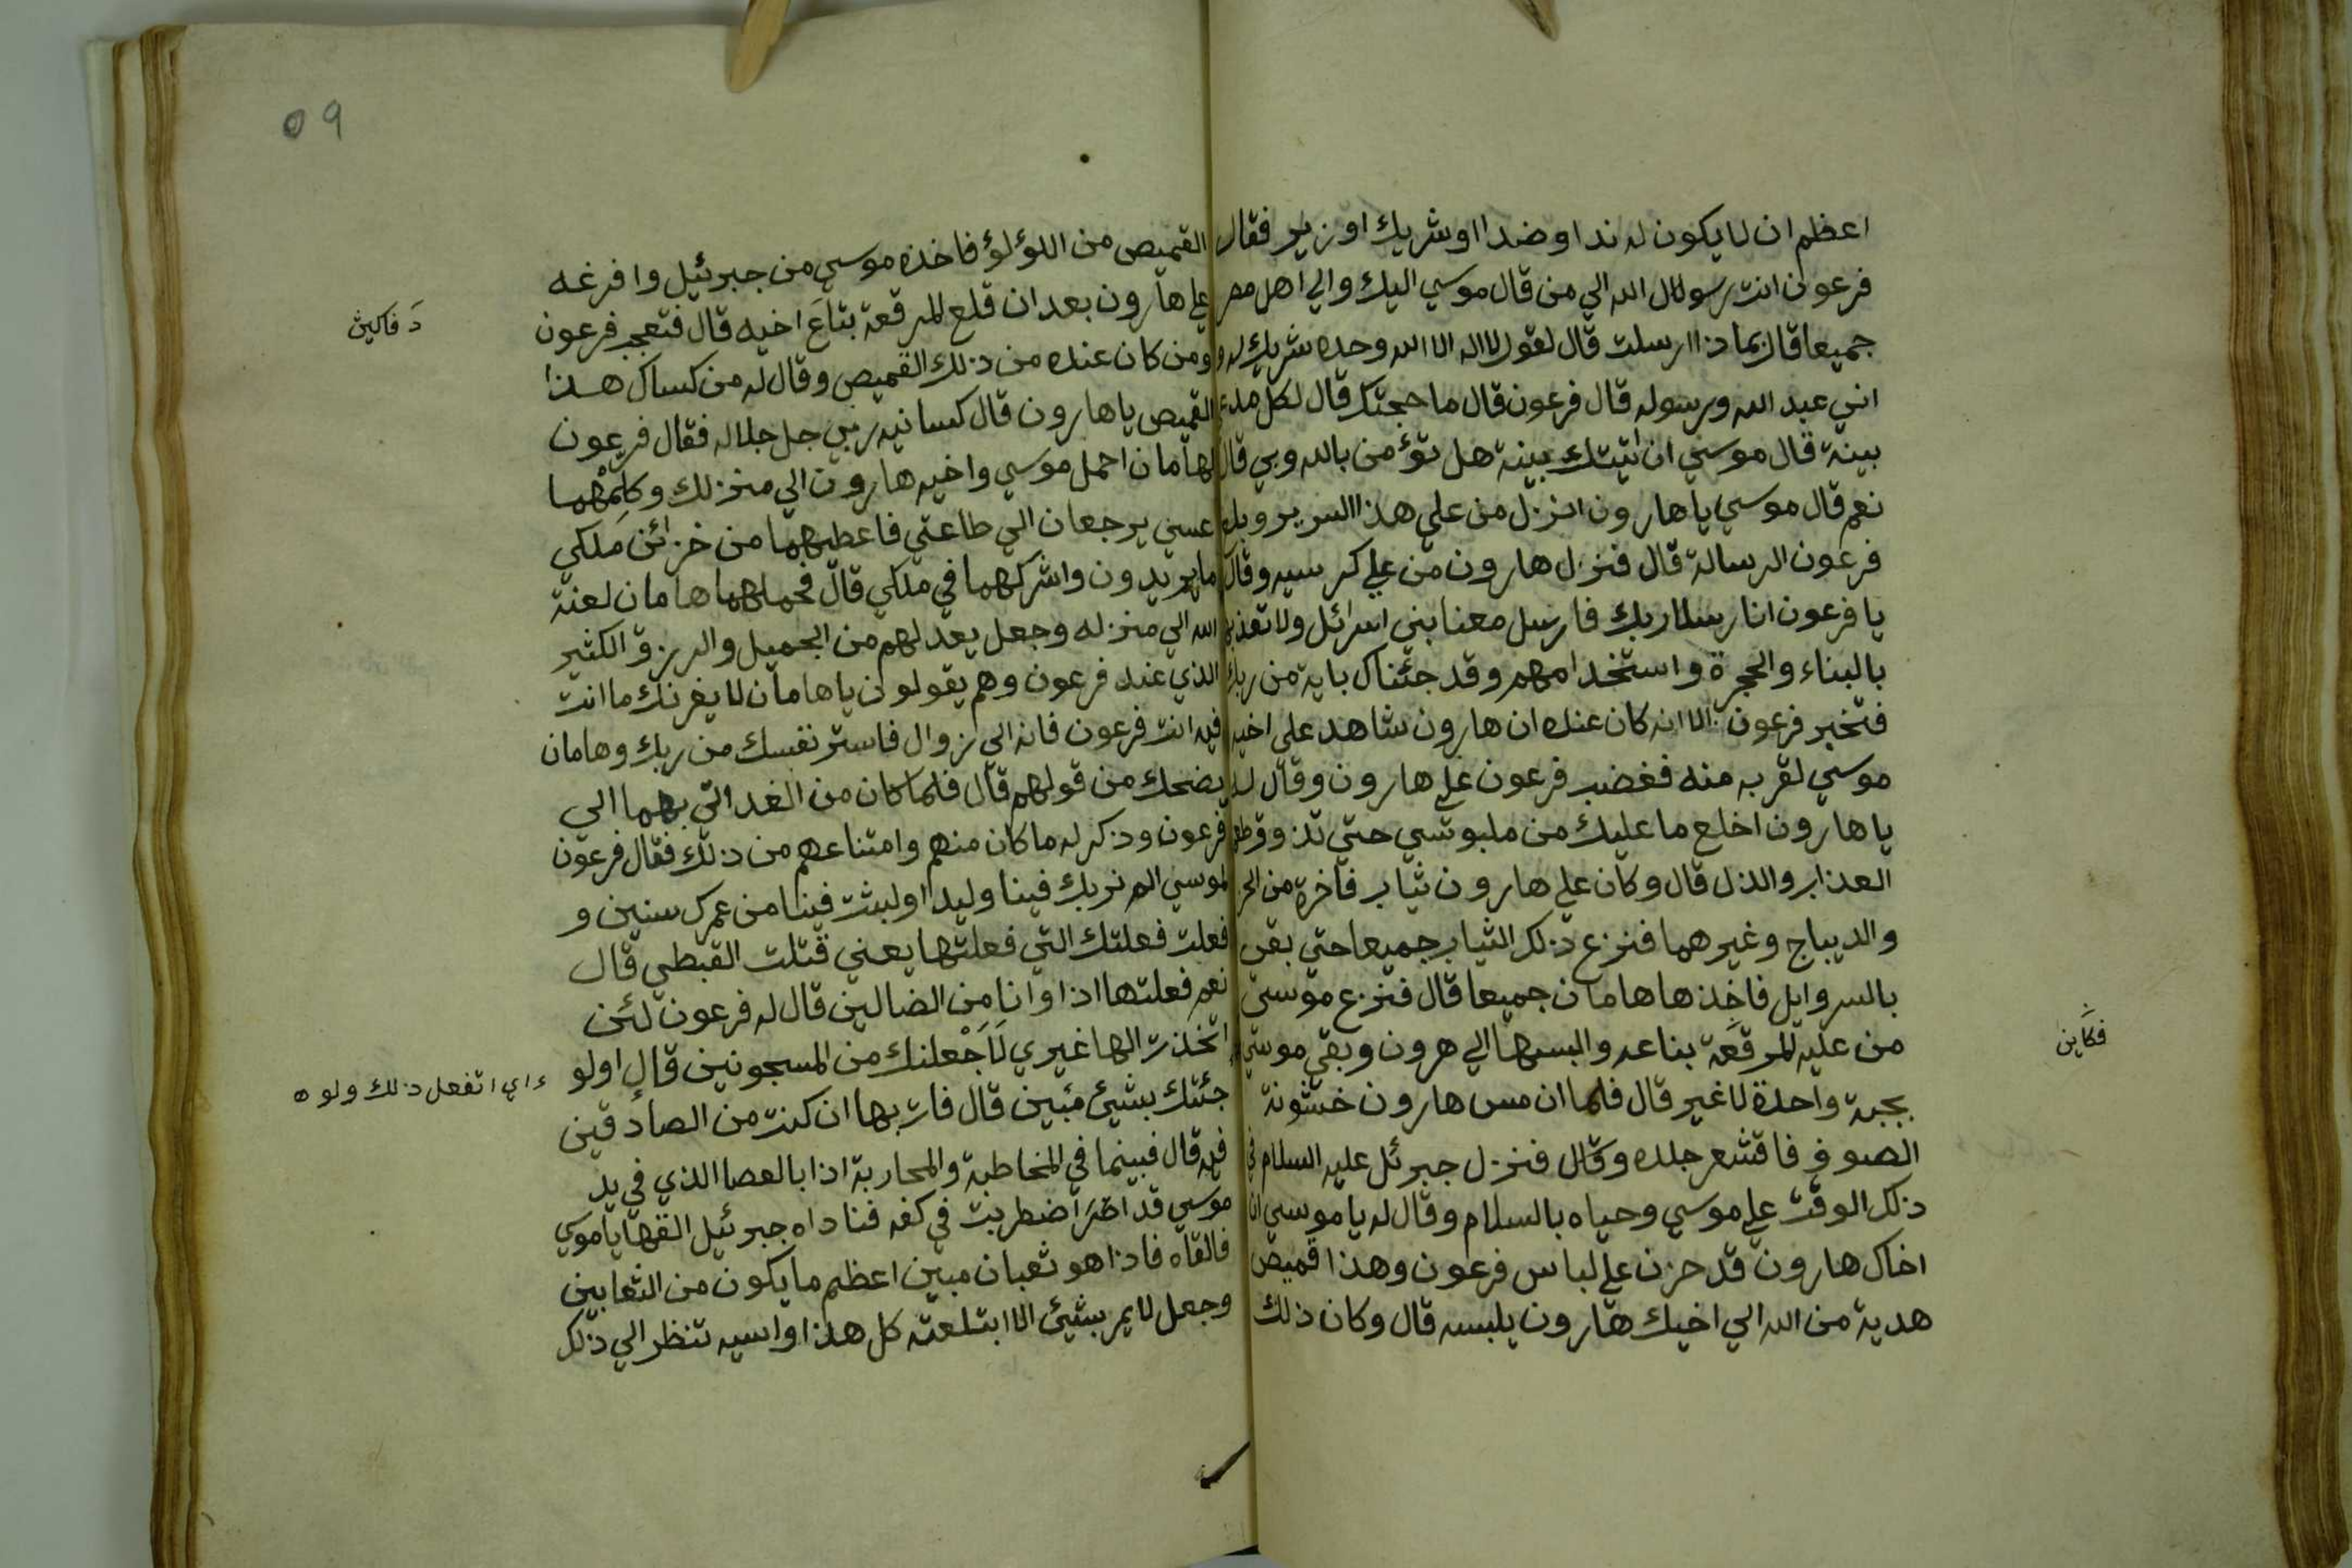 اعظم ان لا يكون له ندا وضدا او شريك او زير فقال
فرعون انت رسولال الله الي من قال موسي اليك والي اهل مصر
جميعا قال بماذا ارسلت قال لقول لا اله الا الله وحده شريك له و
اني عبد الله ورسوله قال فرعون قال ما حجتك قال لكل مدع
بينة قال موسي ان اتيتك ببينة هل تؤمن بالله وبي قال
نعم قال موسي يا هارون انزل من علي هذا السرير وبلغ
فرعون الرسالة قال فنزل هارون من علي كرسيه وقال
يا فرعون انا رسلا ربك فارسل معنا بني اسرائل ولا تعذبهم
بالبناء والحجرة واستخدامهم وقد جئناك باية من ربك
فتخير فرعون الا انه كان عنده ان هارون شاهد علي اخيه
موسي لقربه منه فغضب فرعون علي هارون وقال له
يا هارون اخلع ما عليك من ملبوسي حتي تذوق طعم
العذاب والذل قال وكان علي هارون ثياب فاخرة من الحر
والديباج وغيرهما فنزع ذلك الثياب جميعا حتي بقي
بالسروايل فاخذها هامان جميعا قال فنزع موسي
من عليه المرقعة بتاعه والبسها الي هرون وبقي موسي
بجبة واحدة لا غير قال فلما ان مس هارون خشونة
الصوف فاقشعر جلده وقال فنزل جبرئل عليه السلام في
ذلك الوقت علي موسي وحياه بالسلام وقال له يا موسي ان
اخاك هارون قد حزن علي لباس فرعون وهذا قميص
هدية من الله الي اخيك هارون يلبسه قال وكان ذلك
فكاين
09
القميص من اللؤلؤ فاخذه موسي من جبرئيل وافرغه
علي هارون بعد ان قلع المرقعة بتاع اخيه قال فتعجب فرعون
ومن كان عنده من ذلك القميص وقال له من كساك هذا
القميص يا هارون قال كسانيه ربي جل جلاله فقال فرعون
لهامان احمل موسي واخيه هارون الي منزلك وكلمهما
عسي يرجعان الي طاعتي فاعطيهما من خزائن ملكي
ما يريدون واشركهما في ملكي قال فحملهما هامان لعنة
الله الي منزله وجعل يعد لهم من الجميل والرزق الكثير
الذي عند فرعون وهم يقولون يا هامان لا يغرنك ما انت
فيه انت فرعون فانه الي زوال فاستر نفسك من ربك وهامان
يضحك من قولهم قال فلما كان من الغد اتي بهما الي
فرعون وذكر له ما كان منهم وامتناعهم من ذلك فقال فرعون
لموسي الم نربك فينا وليدا ولبثت فينا من عمرك سنين و
فعلت فعلتك التي فعلتها يعني قتلت القبطي قال
نعم فعلتها اذا وانا من الضالين قال له فرعون لئن
اتخذت الها غيري لاجعلنك من المسجونين قال اولو
جئتك بشيئ مبين قال فات بها ان كنت من الصادقين
فيه قال فبينما في المخاطبة والمحاربة اذا بالعصا الذي في يد
موسي قد اضطربت في كفه فناداه جبرئيل القها يا موسي
فالقاه فاذا هو ثعبان مبين اعظم ما يكون من الثعابين
وجعل لا يمر بشيئ الا ابتلعته كل هذا واسيه تنظر الي ذلك
اي اتفعل ذلك ولو ه